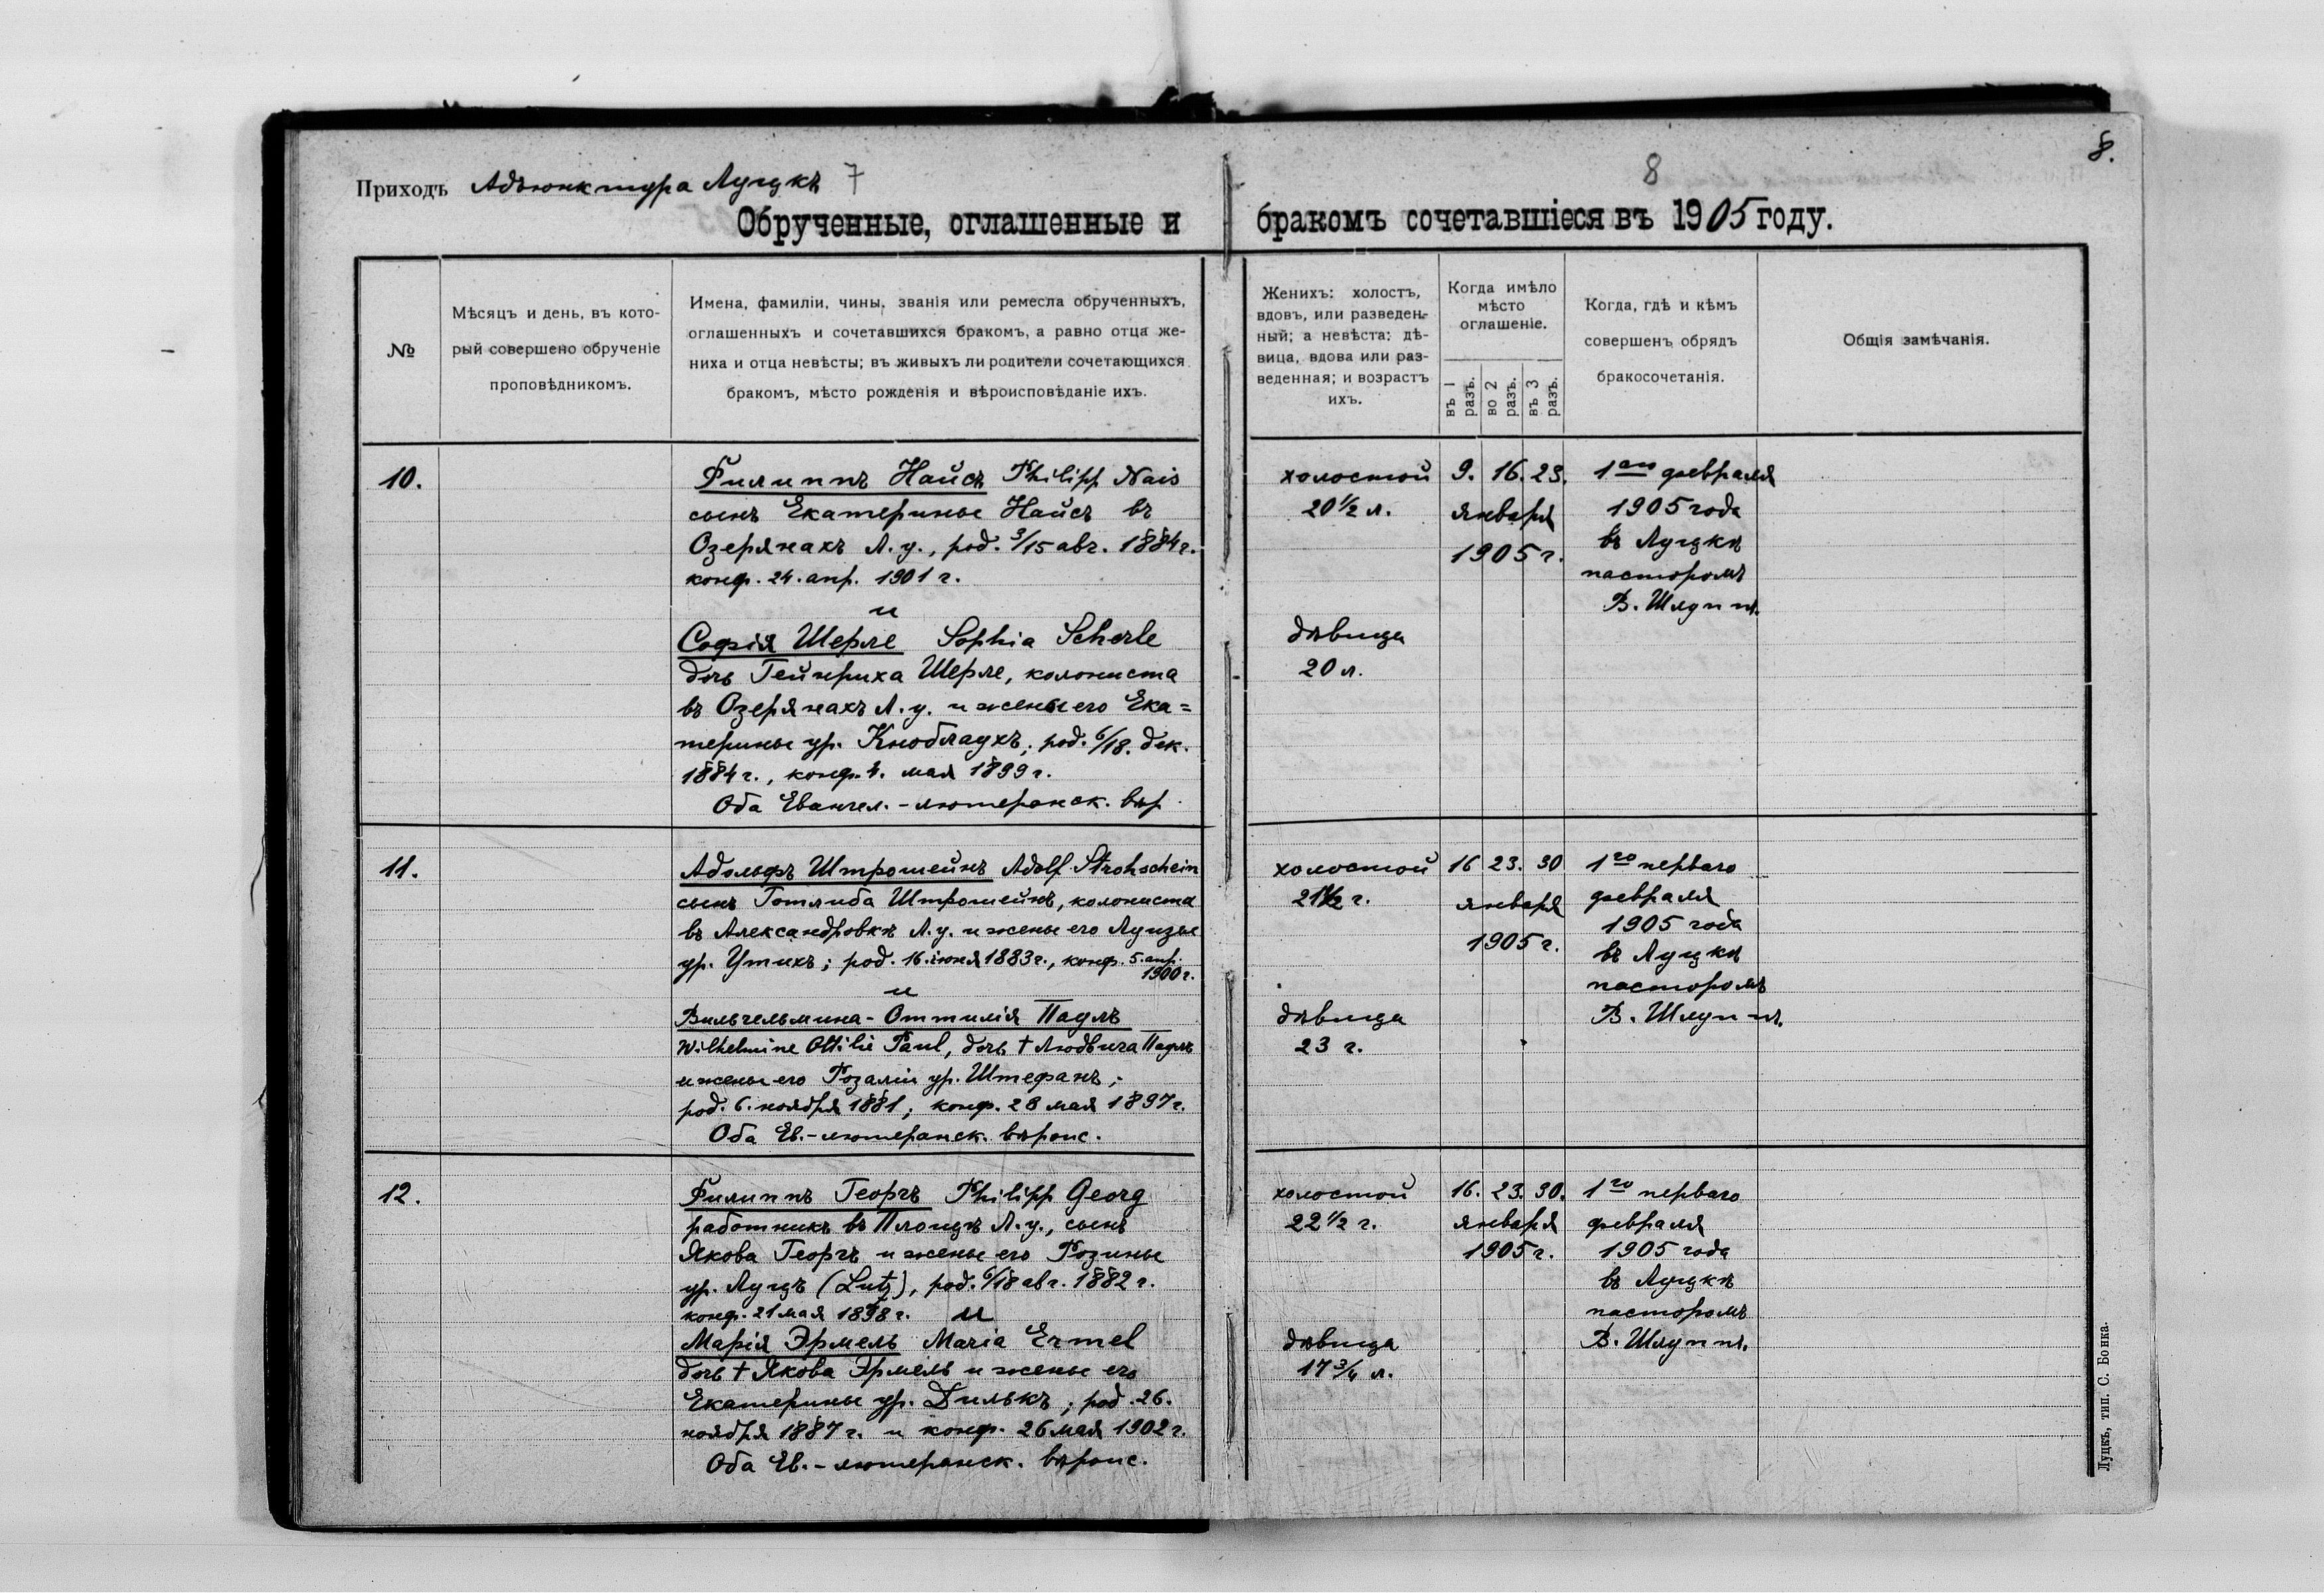 8.
Приходъ Адъюнктура Луцкъ 7
8
Обрученные, оглашенные и бракомъ сочетавшіеся въ 1905 году.
№
Мѣсяцъ и день, въ кото-
рый совершено обрученіе
проповѣдникомъ.
Имена, фамиліи, чины, званія или ремесла обрученныхъ,
оглашенныхъ и сочетавшихся бракомъ, а равно отца же-
ниха и отца невѣсты; въ живыхъ ли родители сочетающихся
бракомъ, мѣсто рожденія и вѣроисповѣданіе ихъ.
Женихъ: холостъ,
вдовъ, или разведен-
ный; а невѣста: дѣ-
вица, вдова или раз-
веденная; и возрастъ
ихъ.
Когда имѣло
мѣсто
оглашеніе.
въ 1 разъ.
во 2 разъ.
въ 3 разъ.
Когда, гдѣ и кѣмъ
совершенъ обрядъ
бракосочетанія.
Общія замѣчанія.
10.
Филиппъ Найсъ Philipp Nais
сынъ Екатерины Найсъ въ
Озерянахъ Л. у., род. 3/15 авг. 1884 г.
конф. 24. апр. 1901 г.
и
Софія Шерле Sophia Scherle
дочь Гейнриха Шерле, колониста
въ Озерянахъ Л. у. и жены его Ека=
терины ур. Кноблаухъ; род. 6/18. дек.
1884 г., конф. 4. мая 1899 г.
Оба Евангел.-лютеранск. вѣр.
холостой
20 1/2 л.
дѣвица
20 л.
9. 16. 23.
января
1905 г.
1ого февраля
1905 года
въ Луцкѣ
пасторомъ
В. Шлуппъ.
11.
Адольфъ Штрошейнъ Adolf Strohschein
сынъ Готлиба Штрошейнъ, колониста
въ Александровкѣ Л. у. и жены его Луизы
ур. Утихъ; род. 16. іюня 1883 г., конф. 5 апр.
1900 г.
и
Вильгельмина-Оттилія Паулъ
Wilhelmine Ottilie Paul, дочь † Людвига Паулъ
и жены его Розаліи ур. Штефанъ;
род. 6. ноября 1881; конф. 28 мая 1897 г.
Оба Ев.-лютеранск. вѣроис.
холостой
21 1/2 г.
дѣвица
23 г.
16 23. 30
января
1905 г.
1го перваго
февраля
1905 года
въ Луцкѣ
пасторомъ
В. Шлуппъ.
12.
Филиппъ Георгъ Philipp Georg
работникъ въ Площѣ Л. у., сынъ
Якова Георгъ и жены его Розины
ур. Лутцъ (Lutz), род. 6/18 авг. 1882 г.
конф. 21 мая 1898 г. и
Марія Эрмель Maria Ermel
дочь † Якова Эрмель и жены его
Екатерины ур. Дилькъ; род. 26.
ноября 1887 г. и конф. 26 мая 1902 г.
Оба Ев.-лютеранск. вѣроис.
холостой
22 1/2 г.
дѣвица
17 3/4 л.
16. 23. 30.
января
1905 г.
1го перваго
февраля
1905 года
въ Луцкѣ
пасторомъ
В. Шлуппъ.
Луцкъ, тип. С. Бонка.